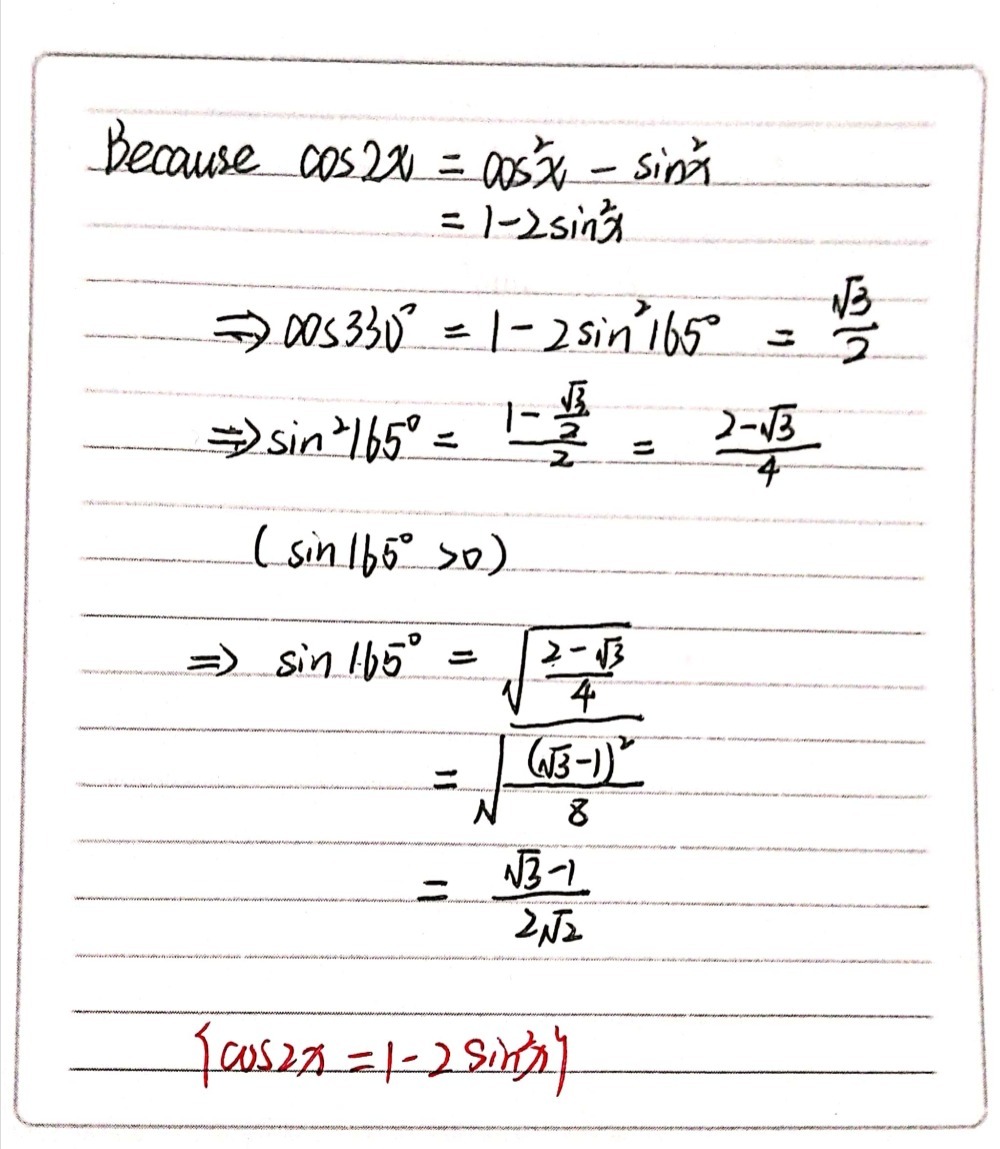 Because cos2x = cos²x − sin²x
= 1−2sin²x
⇒ cos330° = 1 − 2sin²165° = √3/2
⇒ sin²165° = (1−√3/2)/2 = (2−√3)/4
(sin165° >0)
⇒ sin165° = √((2−√3)/4)
= √((√3−1)²/8)
= (√3−1)/(2√2)
{cos2x = 1−2sin²x}